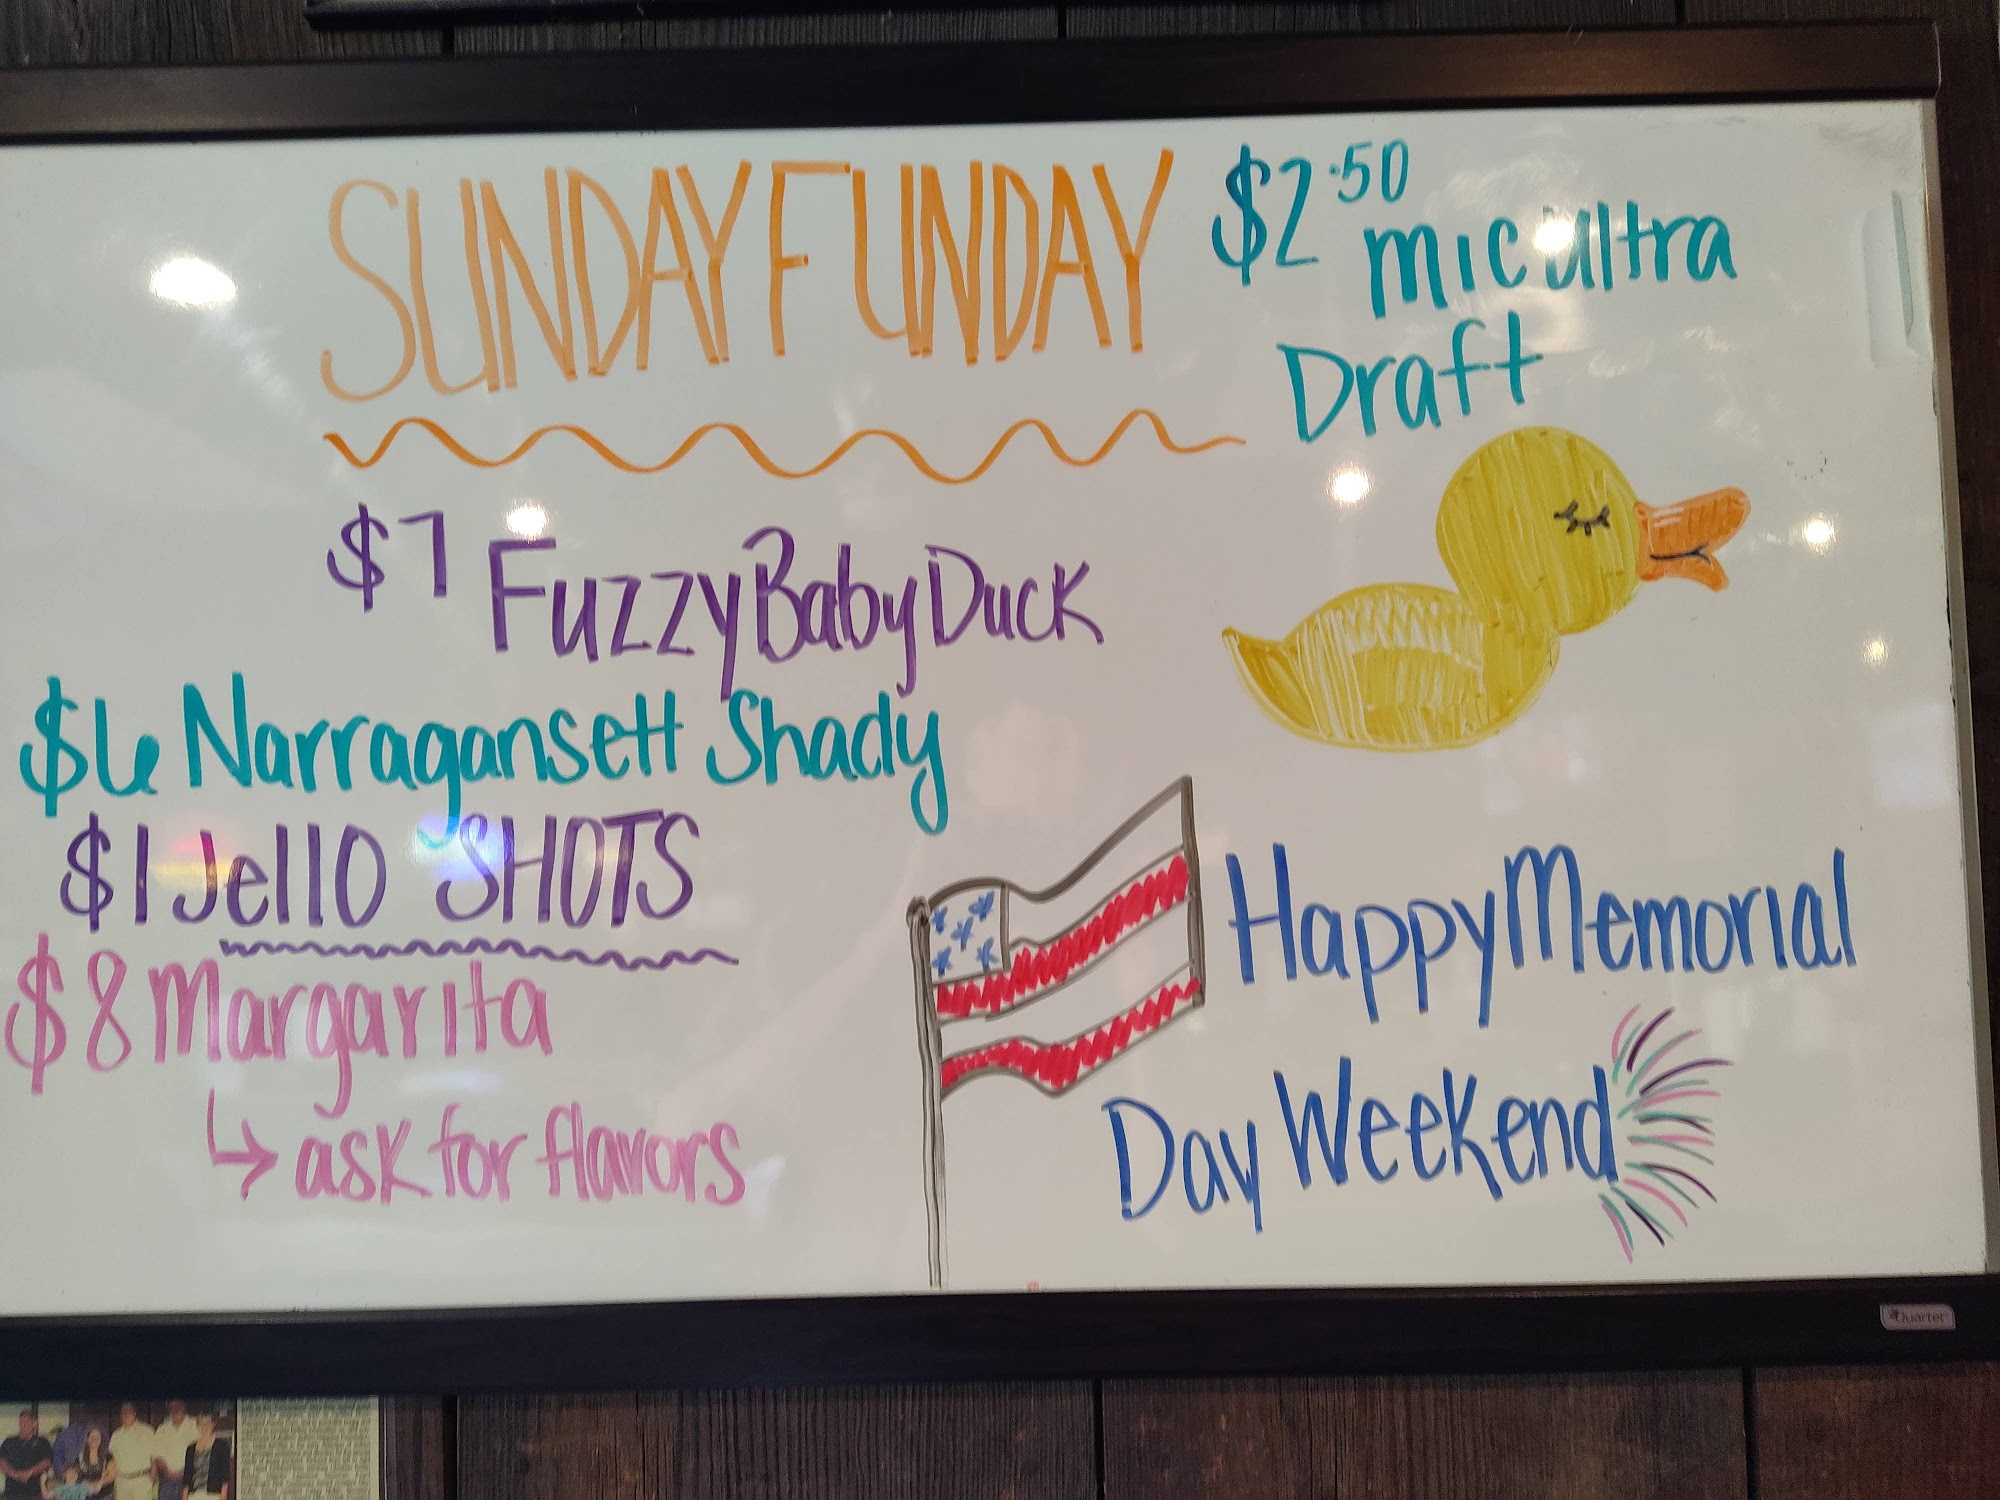 SUNDAY FUNDAY
$2.50 mic ultra
Draft
$7 Fuzzy Baby Duck
$6 Narragansett Shady
$1 Jello SHOTS
$8 Margarita
ask for flavors
Happy Memorial
Day Weekend
Quartet